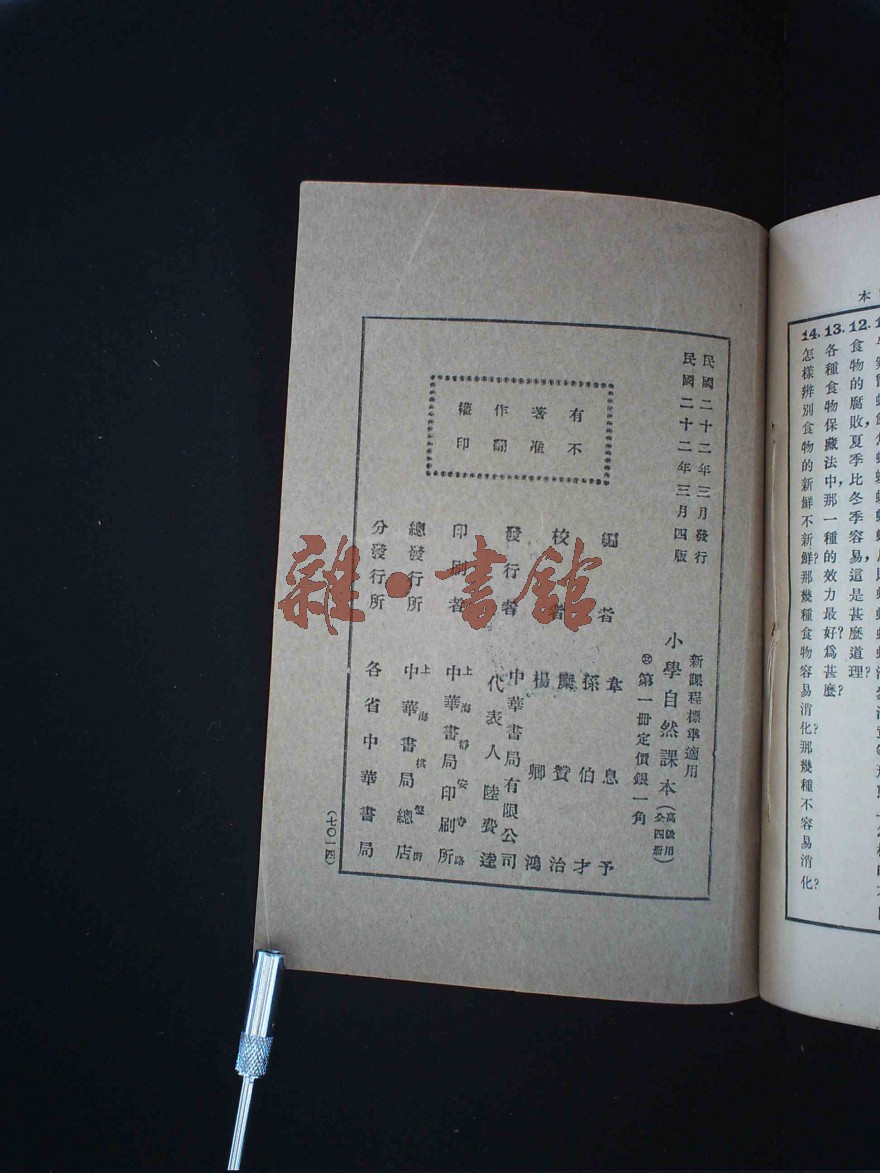 本
12. 食物的腐敗,夏季比冬季容易,這是甚麼道理?
13. 各種食物保藏法中,那一種的效力最好?爲甚麼?
14. 怎樣辨別食物的新鮮不新鮮?那幾種食物容易消化?那幾種不容易消化?
民國二十二年三月發行
民國二十二年三月四版
有著作權
不准翻印
新課程標準適用
小學自然課本(高級用全四冊)
第一冊定價銀一角
編者 韋息予
孫伯才
校者 糜贊治
楊卿鴻
發行者 中華書局有限公司
代表人 陸費逵
印刷者 上海靜安寺路
中華書局印刷所
總發行所 上海棋盤街
中華書局總店
分發行所 各省中華書局
(七〇一四)
雜·書館